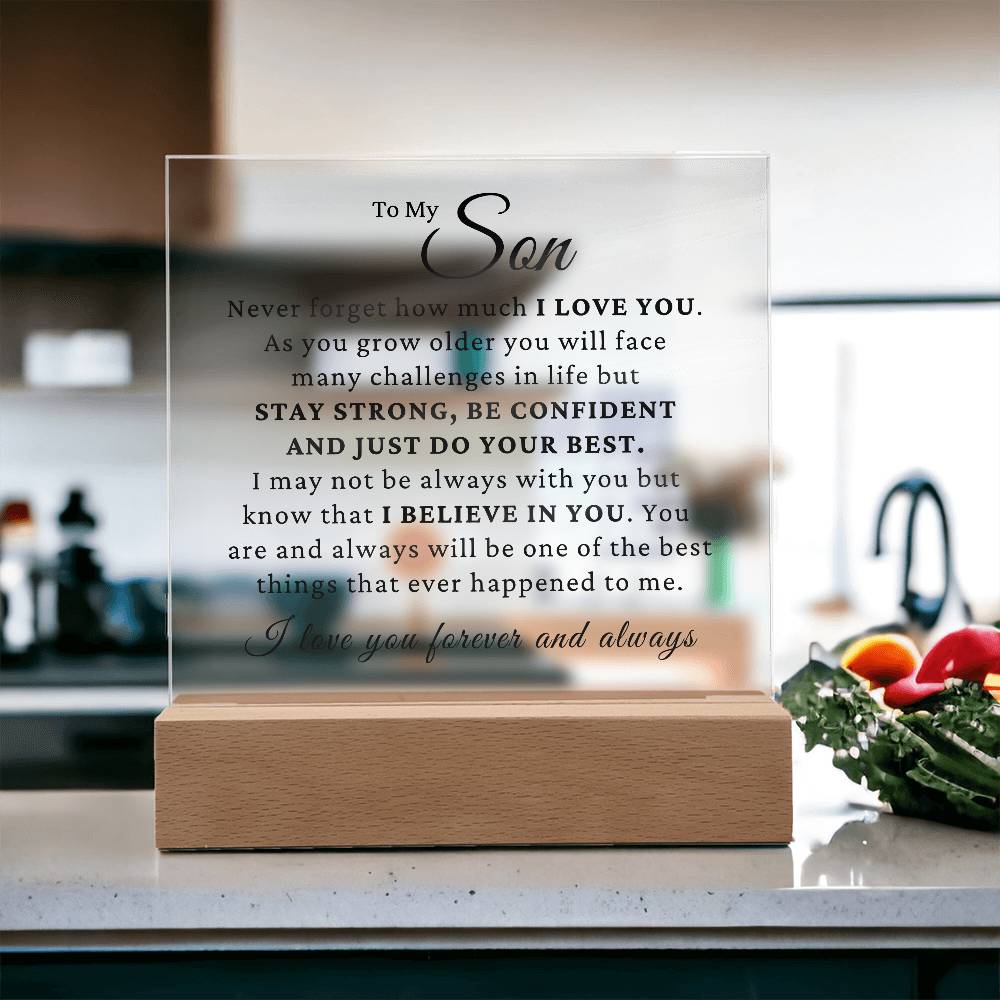 To My Son
Never forget how much I LOVE YOU.
As you grow older you will face
many challenges in life but
STAY STRONG, BE CONFIDENT
AND JUST DO YOUR BEST.
I may not be always with you but
know that I BELIEVE IN YOU. You
are and always will be one of the best
things that ever happened to me.
I love you forever and always